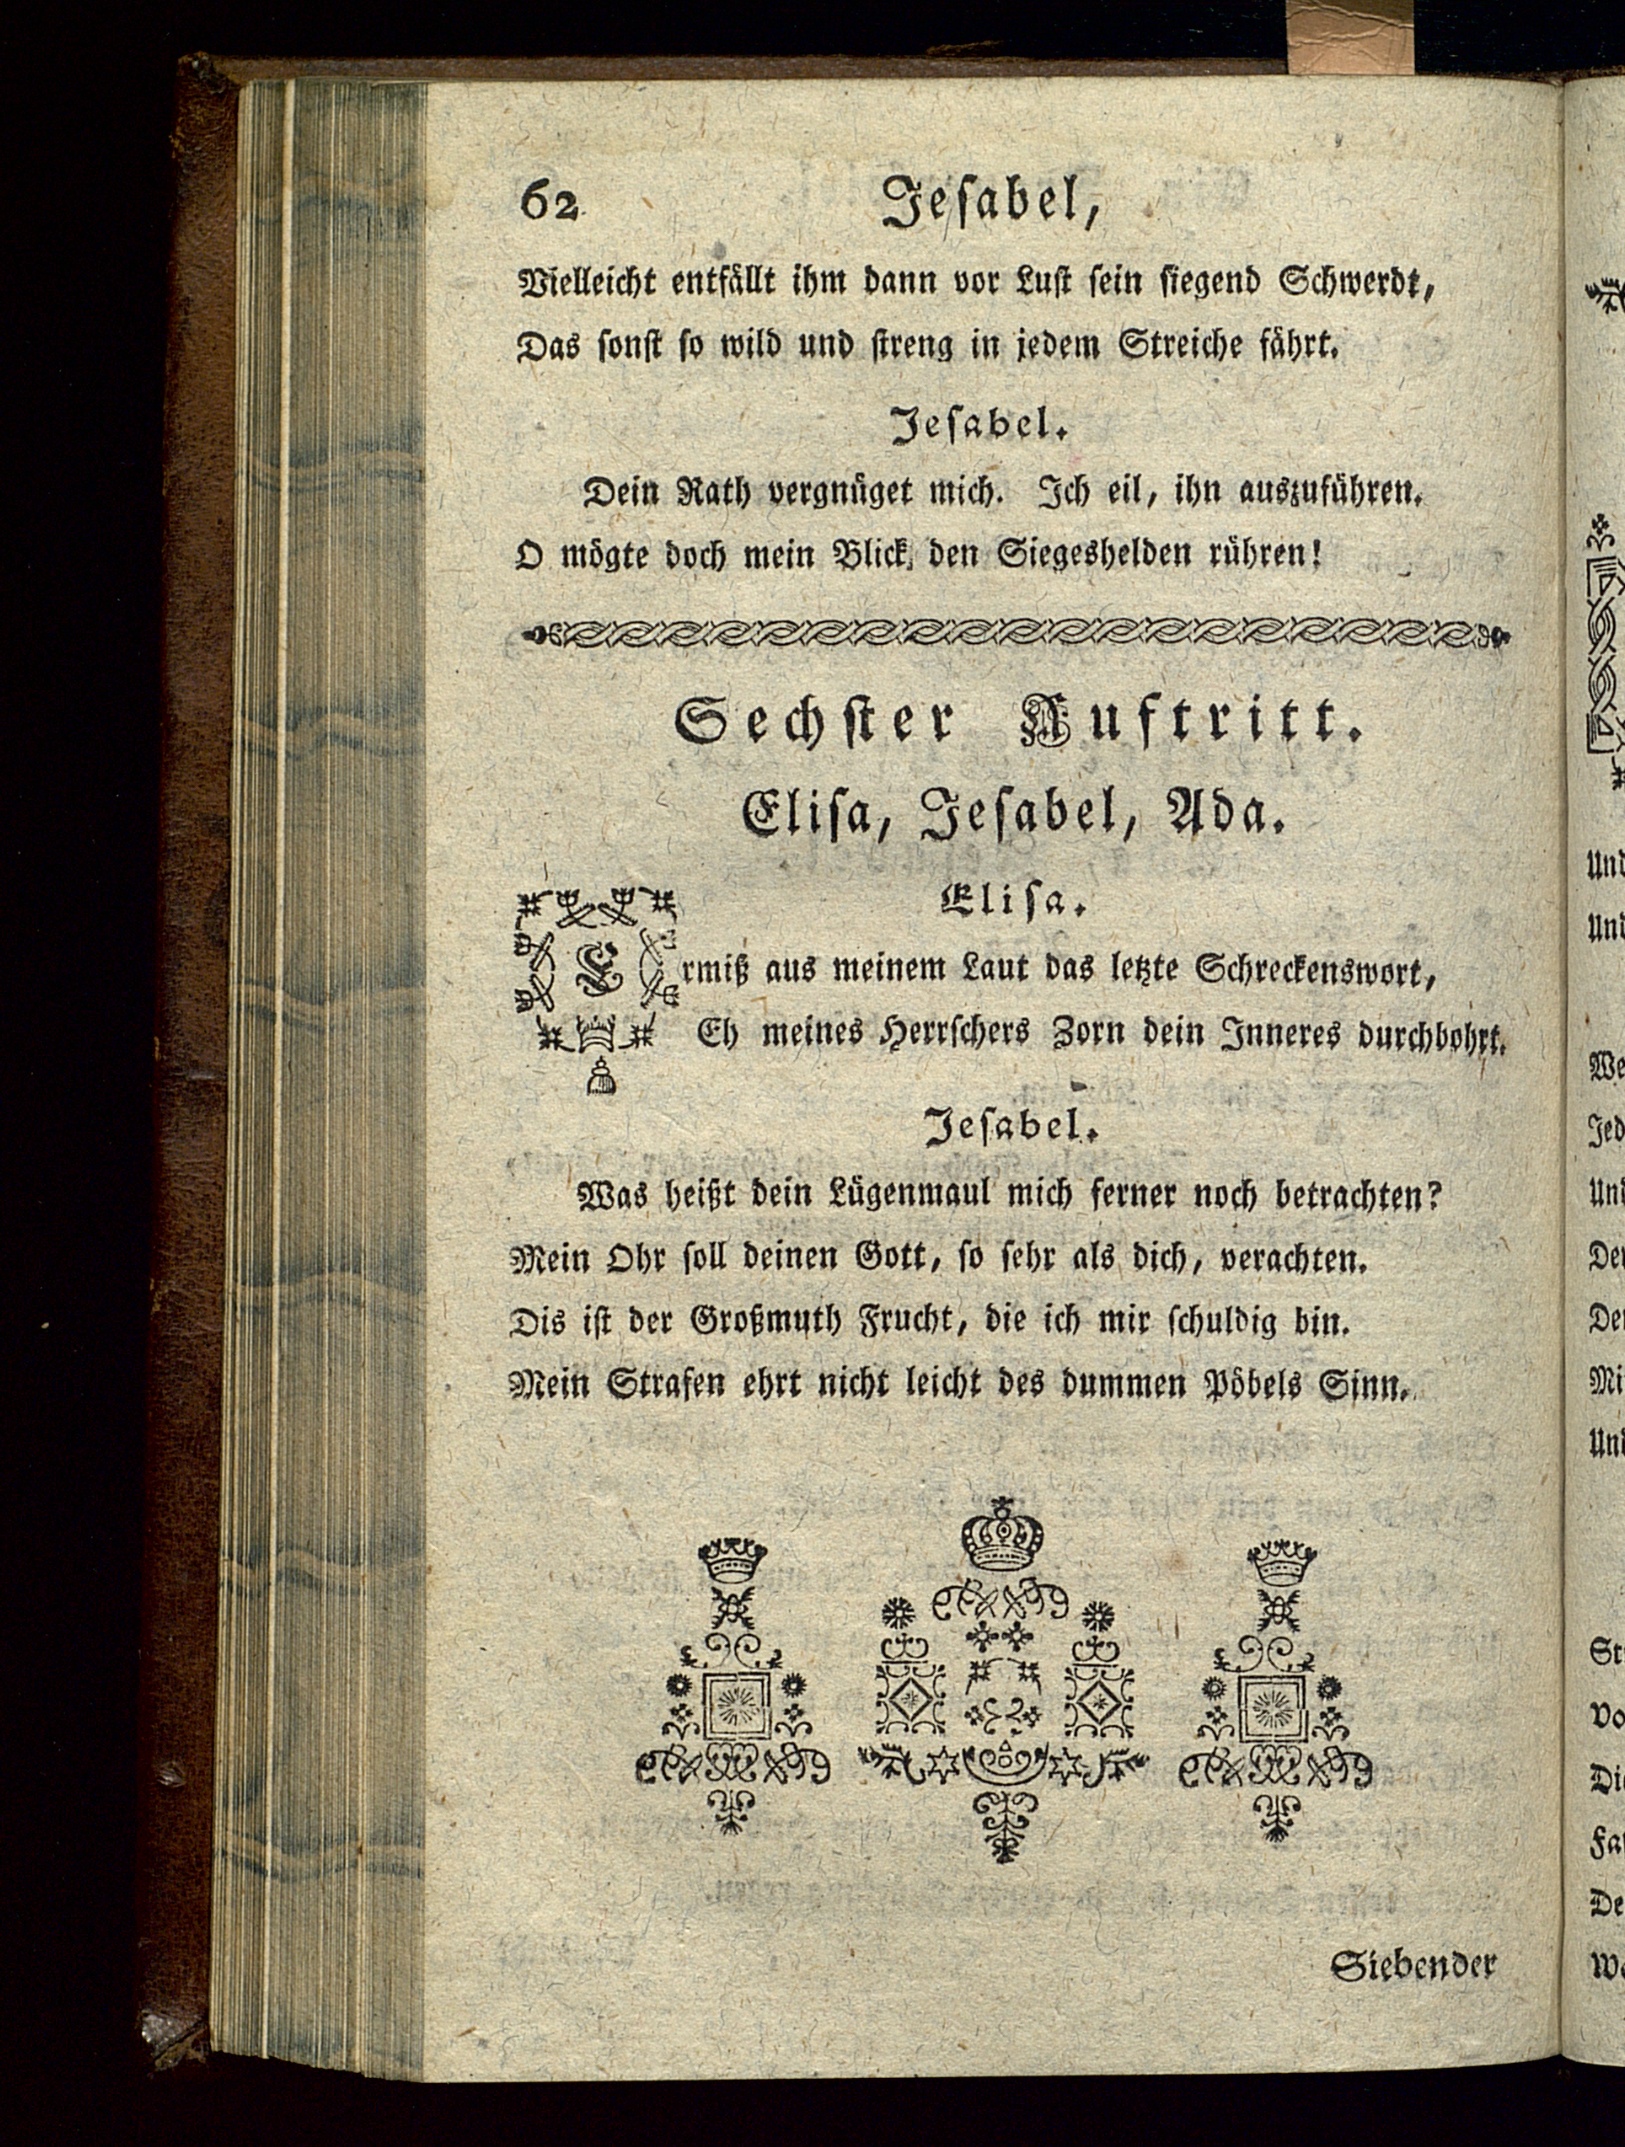 62 Jeſabel,
Vielleicht entfällt ihm dann vor Luſt ſein ſiegend Schwerdt,
Das ſonſt ſo wild und ſtreng in jedem Streiche fährt.
Jeſabel.
Dein Rath vergnüget mich. Ich eil, ihn auszuführen.
O mögte doch mein Blick den Siegeshelden rühren!
Sechſter Auftritt.
Eliſa, Jeſabel, Ada.
Eliſa.
Ermiß aus meinem Laut das letzte Schreckenswort,
Eh meines Herrſchers Zorn dein Inneres durchbohrt.
Jeſabel.
Was heißt dein Lügenmaul mich ferner noch betrachten?
Mein Ohr ſoll deinen Gott, ſo ſehr als dich, verachten.
Dis iſt der Großmuth Frucht, die ich mir ſchuldig bin.
Mein Strafen ehrt nicht leicht des dummen Pöbels Sinn.
Siebender